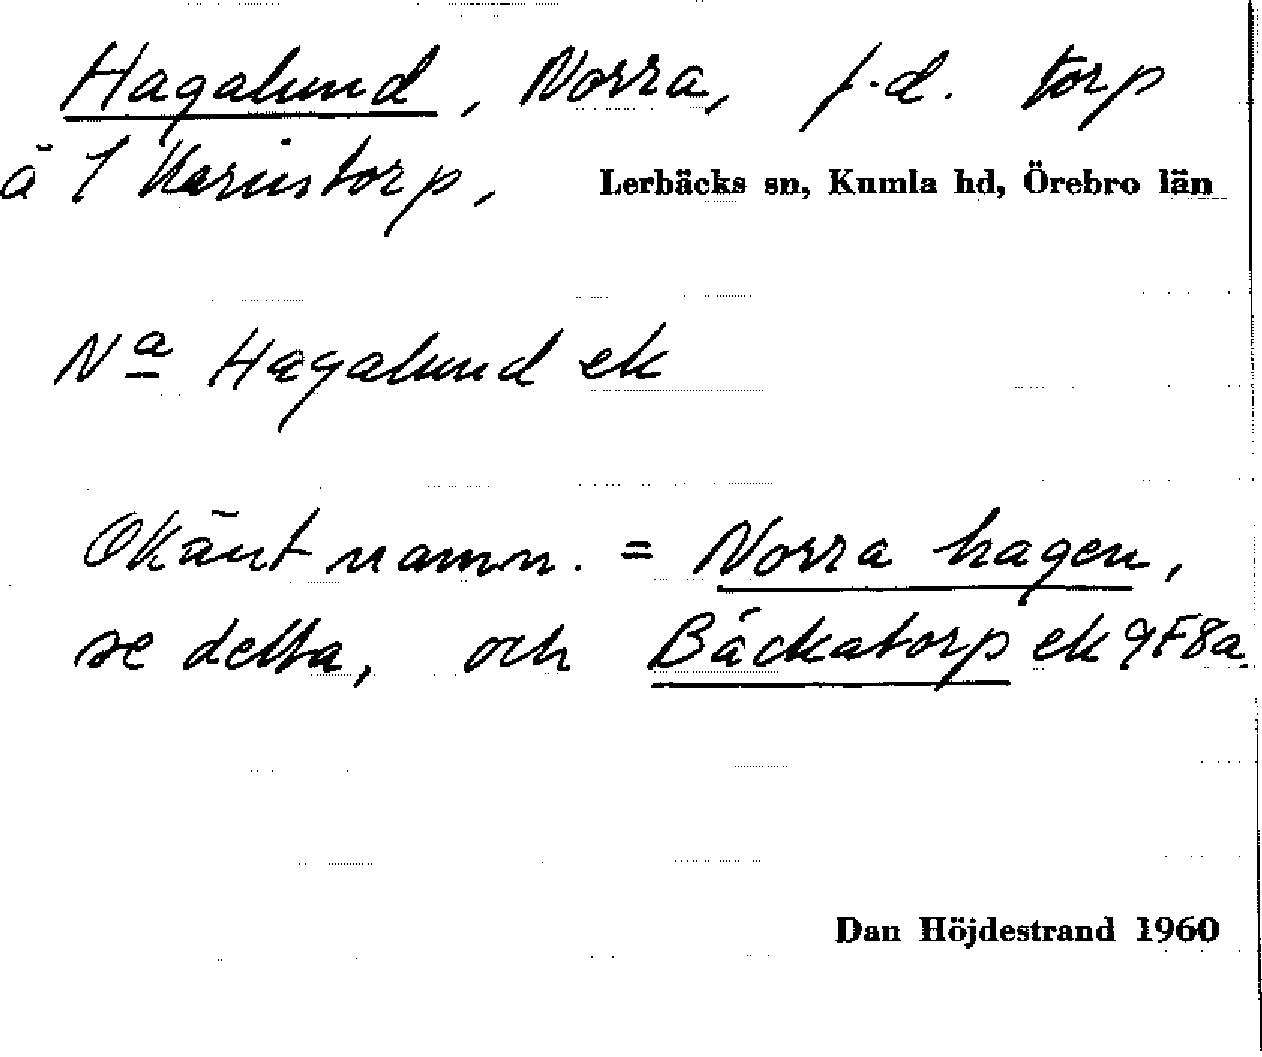 Hagalund, Norra, f.d. torp
å 1 Karinstorp, Lerbäcks sn, Kumla hd, Örebro län
Nª Hagalund ek
Okänt namn. = Norra hagen,
se detta, och Bäckatorp ek 9F8a.
Dan Höjdestrand 1960